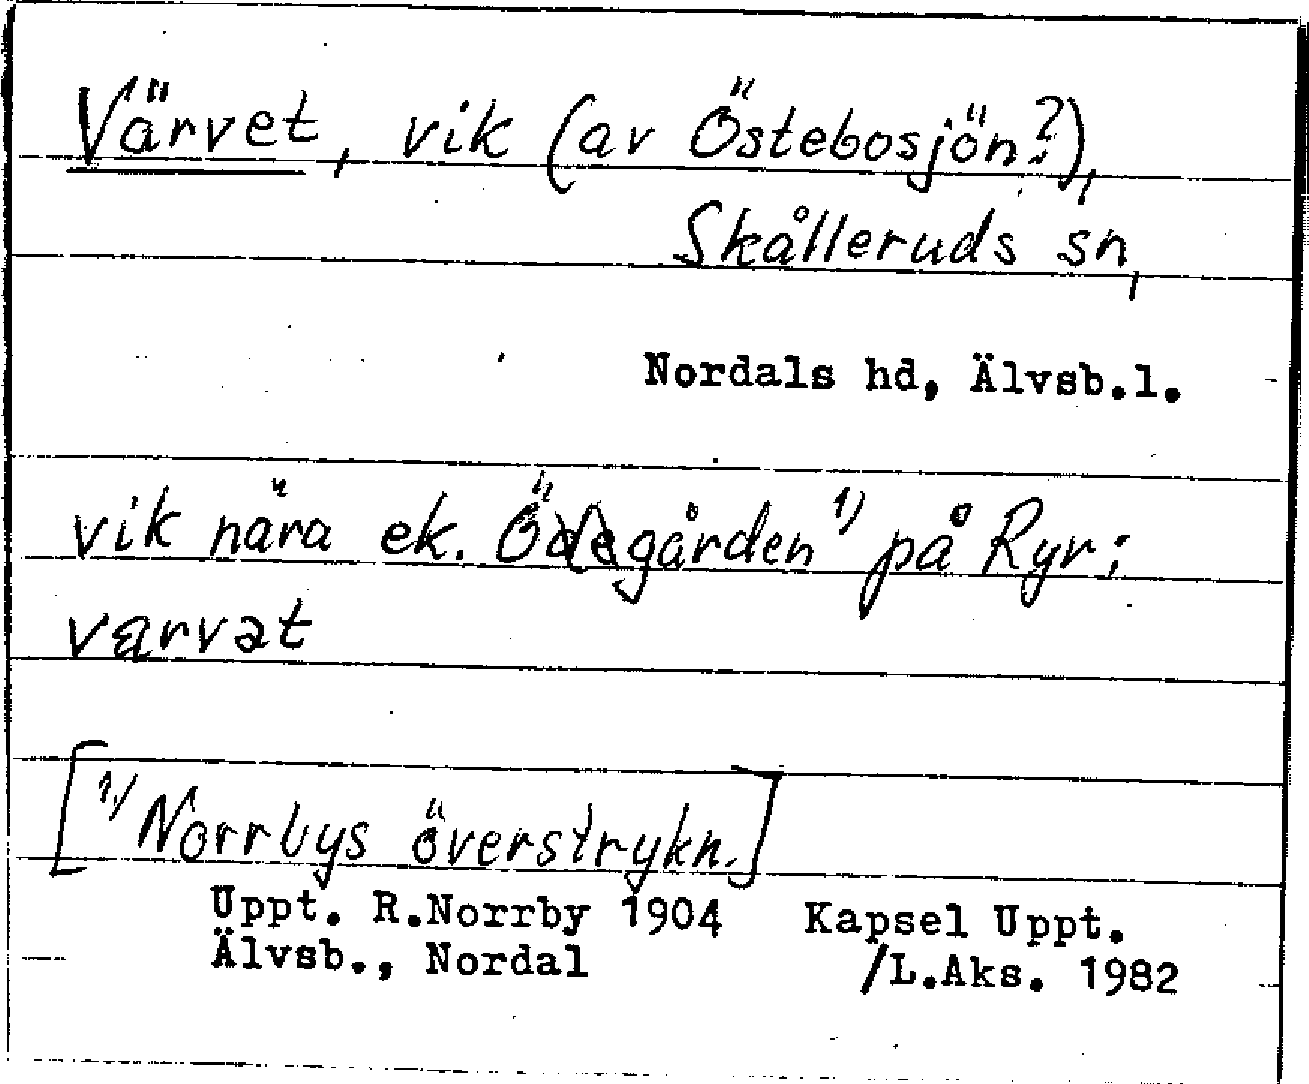 Värvet, vik (av Östebosjön?),
Skålleruds sn,
Nordals hd, Älvsb.l.
vik nära ek. Ödegården 1) på Ryr:
varvət
[1) Norrbys överstrykn.]
Uppt. R.Norrby 1904 Kapsel Uppt.
Älvsb., Nordal /L.Aks. 1982